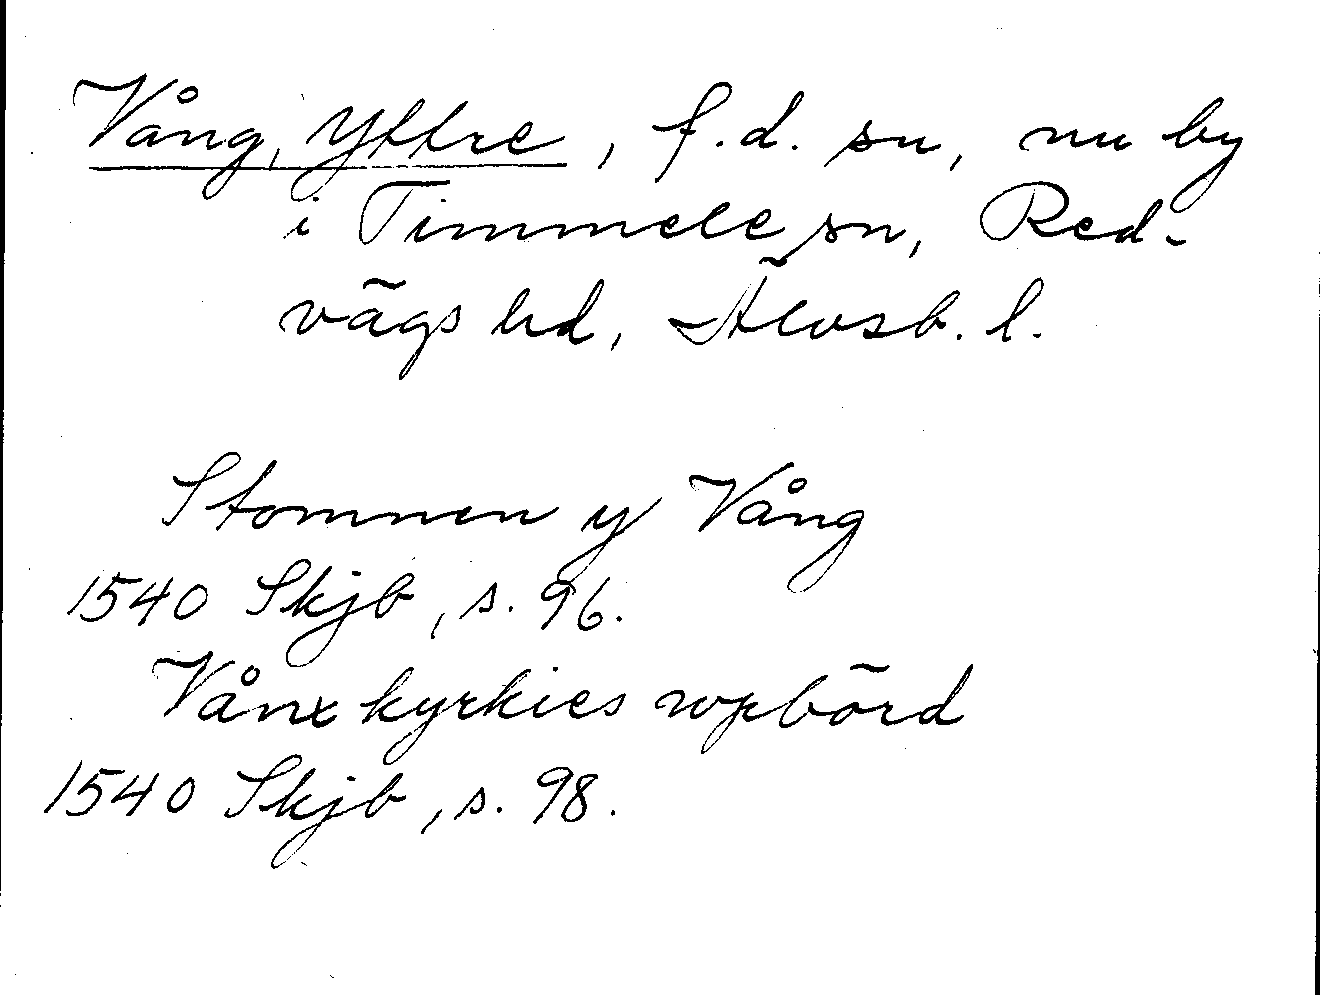 Vång, Yttre, f.d. sn, nu by
i Timmele sn, Red-
vägs hd, Älvsb. l.
Stommen y Vång
1540 Skjb, s. 96.
Vånx kyrkies wpbörd
1540 Skjb, s. 98.